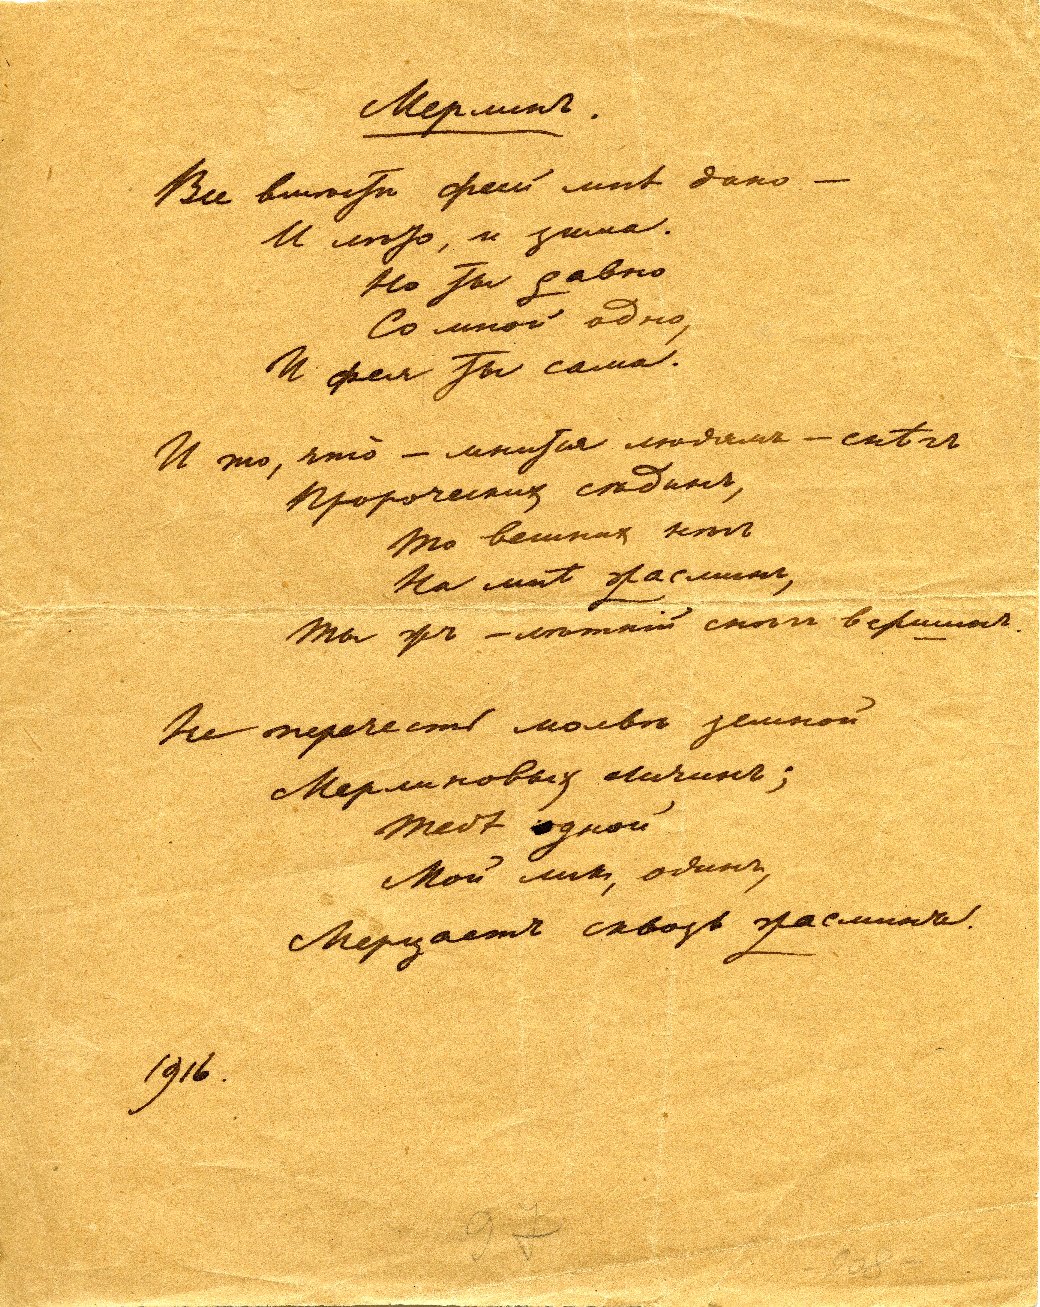 Мерлинъ.
Все вмѣстѣ феей мнѣ дано —
И лѣто, и зима.
Но ты давно
Со мной одно,
И фея ты сама.
И то, что — мнится людямъ — снѣгъ
Пророческих сѣдинъ,
То вешних нѣгъ
На мнѣ жасминъ,
Ты жъ — лѣтній снѣгъ вершинъ.
Не перечесть молвѣ земной
Мерлиновых личинъ;
Тебѣ одной
Мой лик, один,
Мерцаетъ сквозь жасминъ.
1916.
97